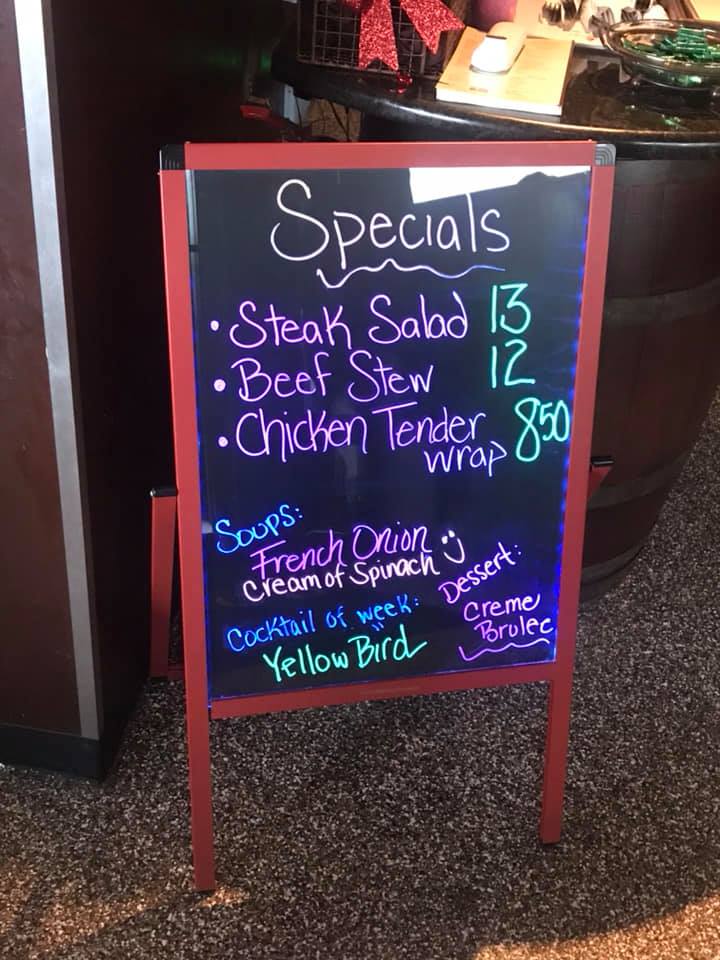 Specials
• Steak Salad 13
• Beef Stew 12
• Chicken Tender wrap 8.50
Soups:
French Onion
Cream of Spinach
Cocktail of week:
Yellow Bird
Dessert:
Creme
Brulee